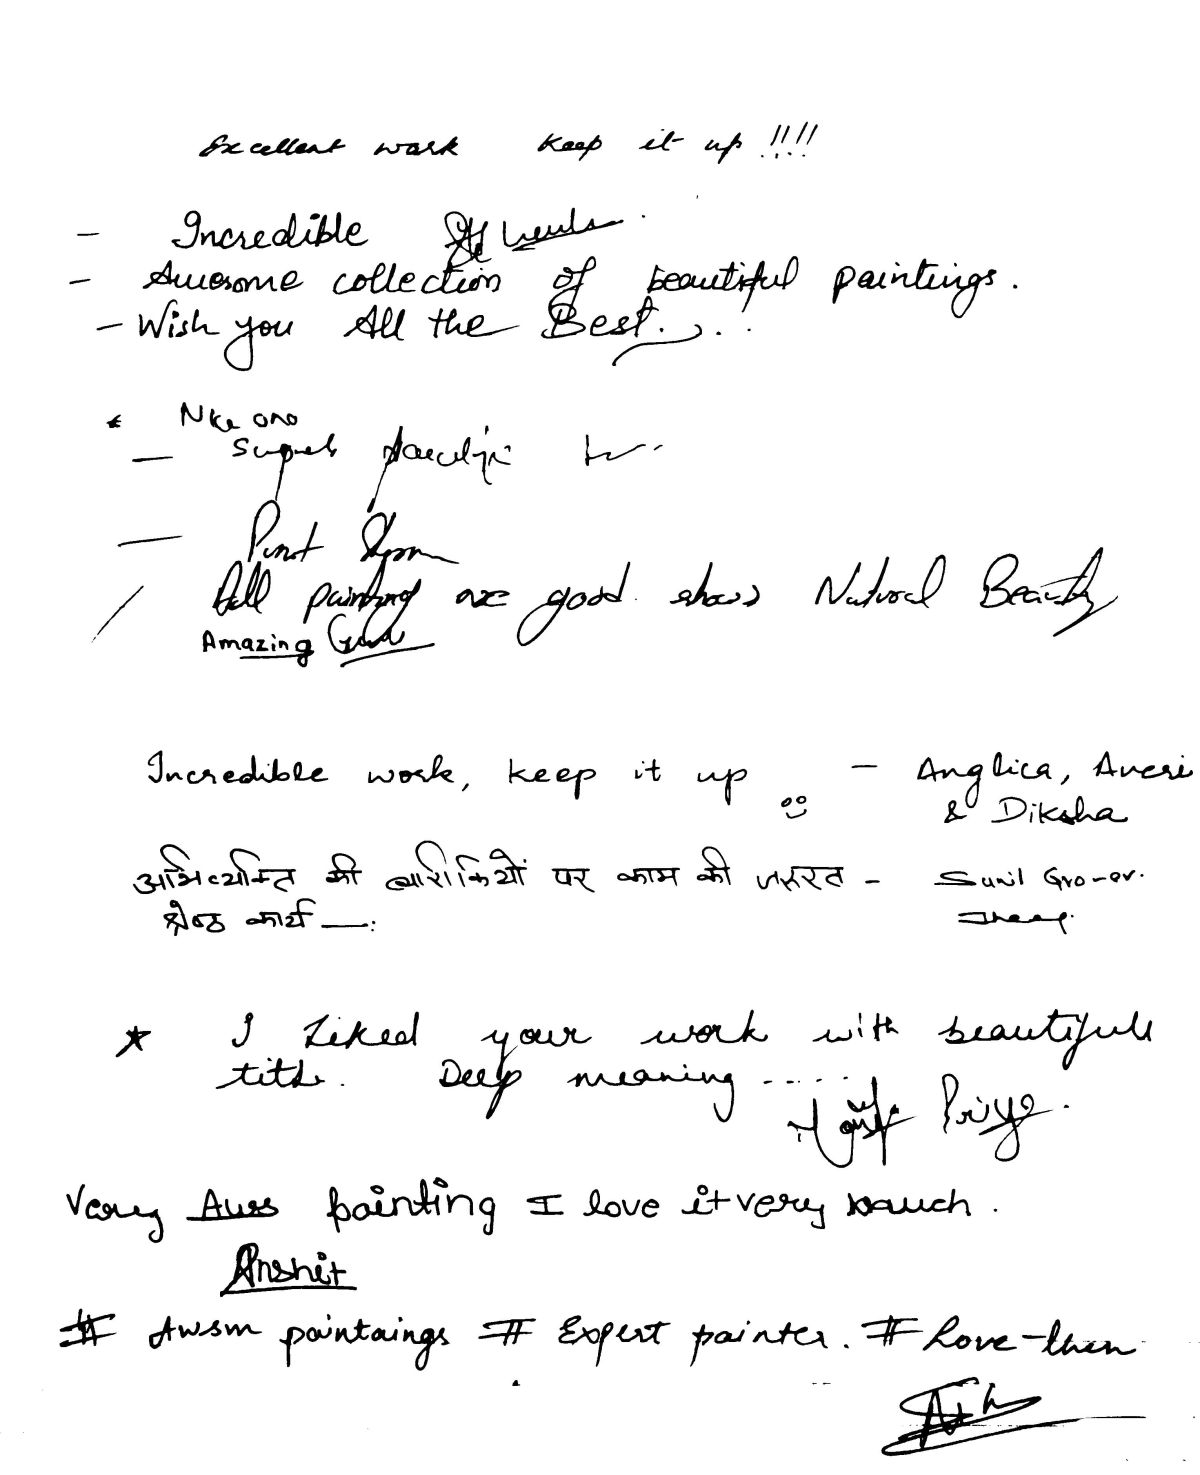 Excellent work keep it up !!!!
- Incredible
- Awesome collection of beautiful paintings.
- Wish you All the Best...
*
- Superb
-
/ All painting are good. shows Natural Beauty
Amazing Good
Incredible work, keep it up - Anglica, Averi
& Diksha
अभिव्यक्ति की बारीकियों पर काम की जरूरत - Sunil Grover.
श्रेष्ठ कार्य —:
* I Liked your work with beautifull
title. Deep meaning ......
Priya.
Verey Awss painting I love it very much.
Anshit
# Awsm paintaings # Expert painter. # Love-then